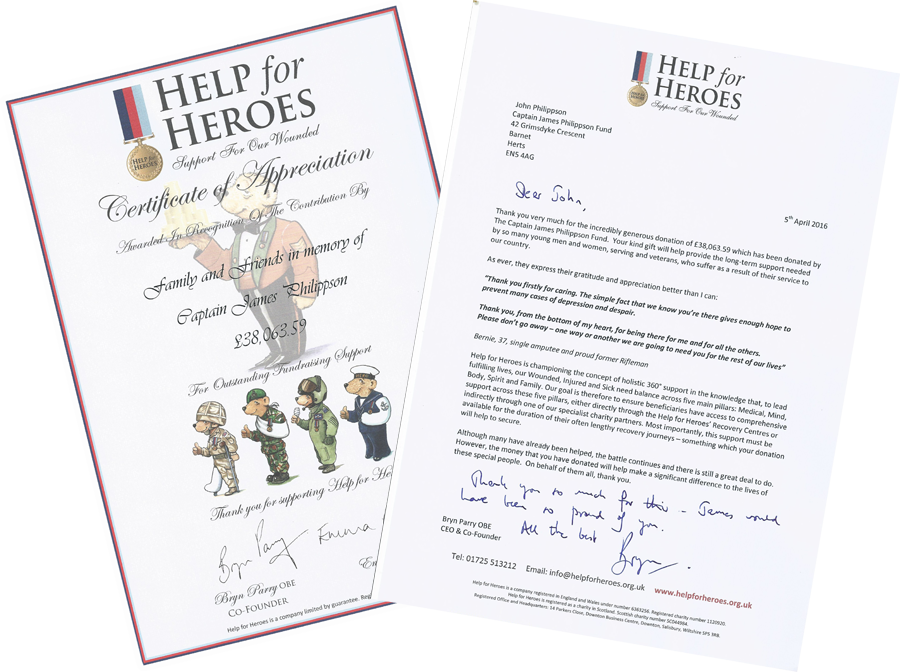 HELP for
HEROES
Support For Our Wounded
HELP for
HEROES
Certificate of Appreciation
Awarded In Recognition Of The Contribution By
Family and Friends in memory of
Captain James Philippson
£38,063.59
For Outstanding Fundraising Support
Thank you for supporting Help for He
Bryn Parry Emma
Bryn Parry OBE
CO-FOUNDER
Help for Heroes is a company limited by guarantee.
HELP for
HEROES
Support For Our Wounded
John Philippson
Captain James Philippson Fund
42 Grimsdyke Crescent
Barnet
Herts
EN5 4AG
Dear John,
5th April 2016
Thank you very much for the incredibly generous donation of £38,063.59 which has been donated by
The Captain James Philippson Fund. Your kind gift will help provide the long-term support needed
by so many young men and women, serving and veterans, who suffer as a result of their service to
our country.
As ever, they express their gratitude and appreciation better than I can:
"Thank you firstly for caring. The simple fact that we know you're there gives enough hope to
prevent many cases of depression and despair.
Thank you, from the bottom of my heart, for being there for me and for all the others.
Please don't go away – one way or another we are going to need you for the rest of our lives"
Bernie, 37, single amputee and proud former Rifleman
Help for Heroes is championing the concept of holistic 360° support in the knowledge that, to lead
fulfilling lives, our Wounded, Injured and Sick need balance across five main pillars: Medical, Mind,
Body, Spirit and Family. Our goal is therefore to ensure beneficiaries have access to comprehensive
support across these five pillars, either directly through the Help for Heroes' Recovery Centres or
indirectly through one of our specialist charity partners. Most importantly, this support must be
available for the duration of their often lengthy recovery journeys – something which your donation
will help to secure.
Although many have already been helped, the battle continues and there is still a great deal to do.
However, the money that you have donated will help make a significant difference to the lives of
these special people. On behalf of them all, thank you.
Thank you so much for this – James would
have been so proud of you.
All the best
Bryn
Bryn Parry OBE
CEO & Co-Founder
Tel: 01725 513212 Email: info@helpforheroes.org.uk www.helpforheroes.org.uk
Help for Heroes is a company registered in England and Wales under number 6363256. Registered charity number 1120920.
Help for Heroes is registered as a charity in Scotland. Scottish charity number SC044984.
Registered Office and Headquarters: 14 Parkers Close, Downton Business Centre, Downton, Salisbury, Wiltshire SP5 3RB.